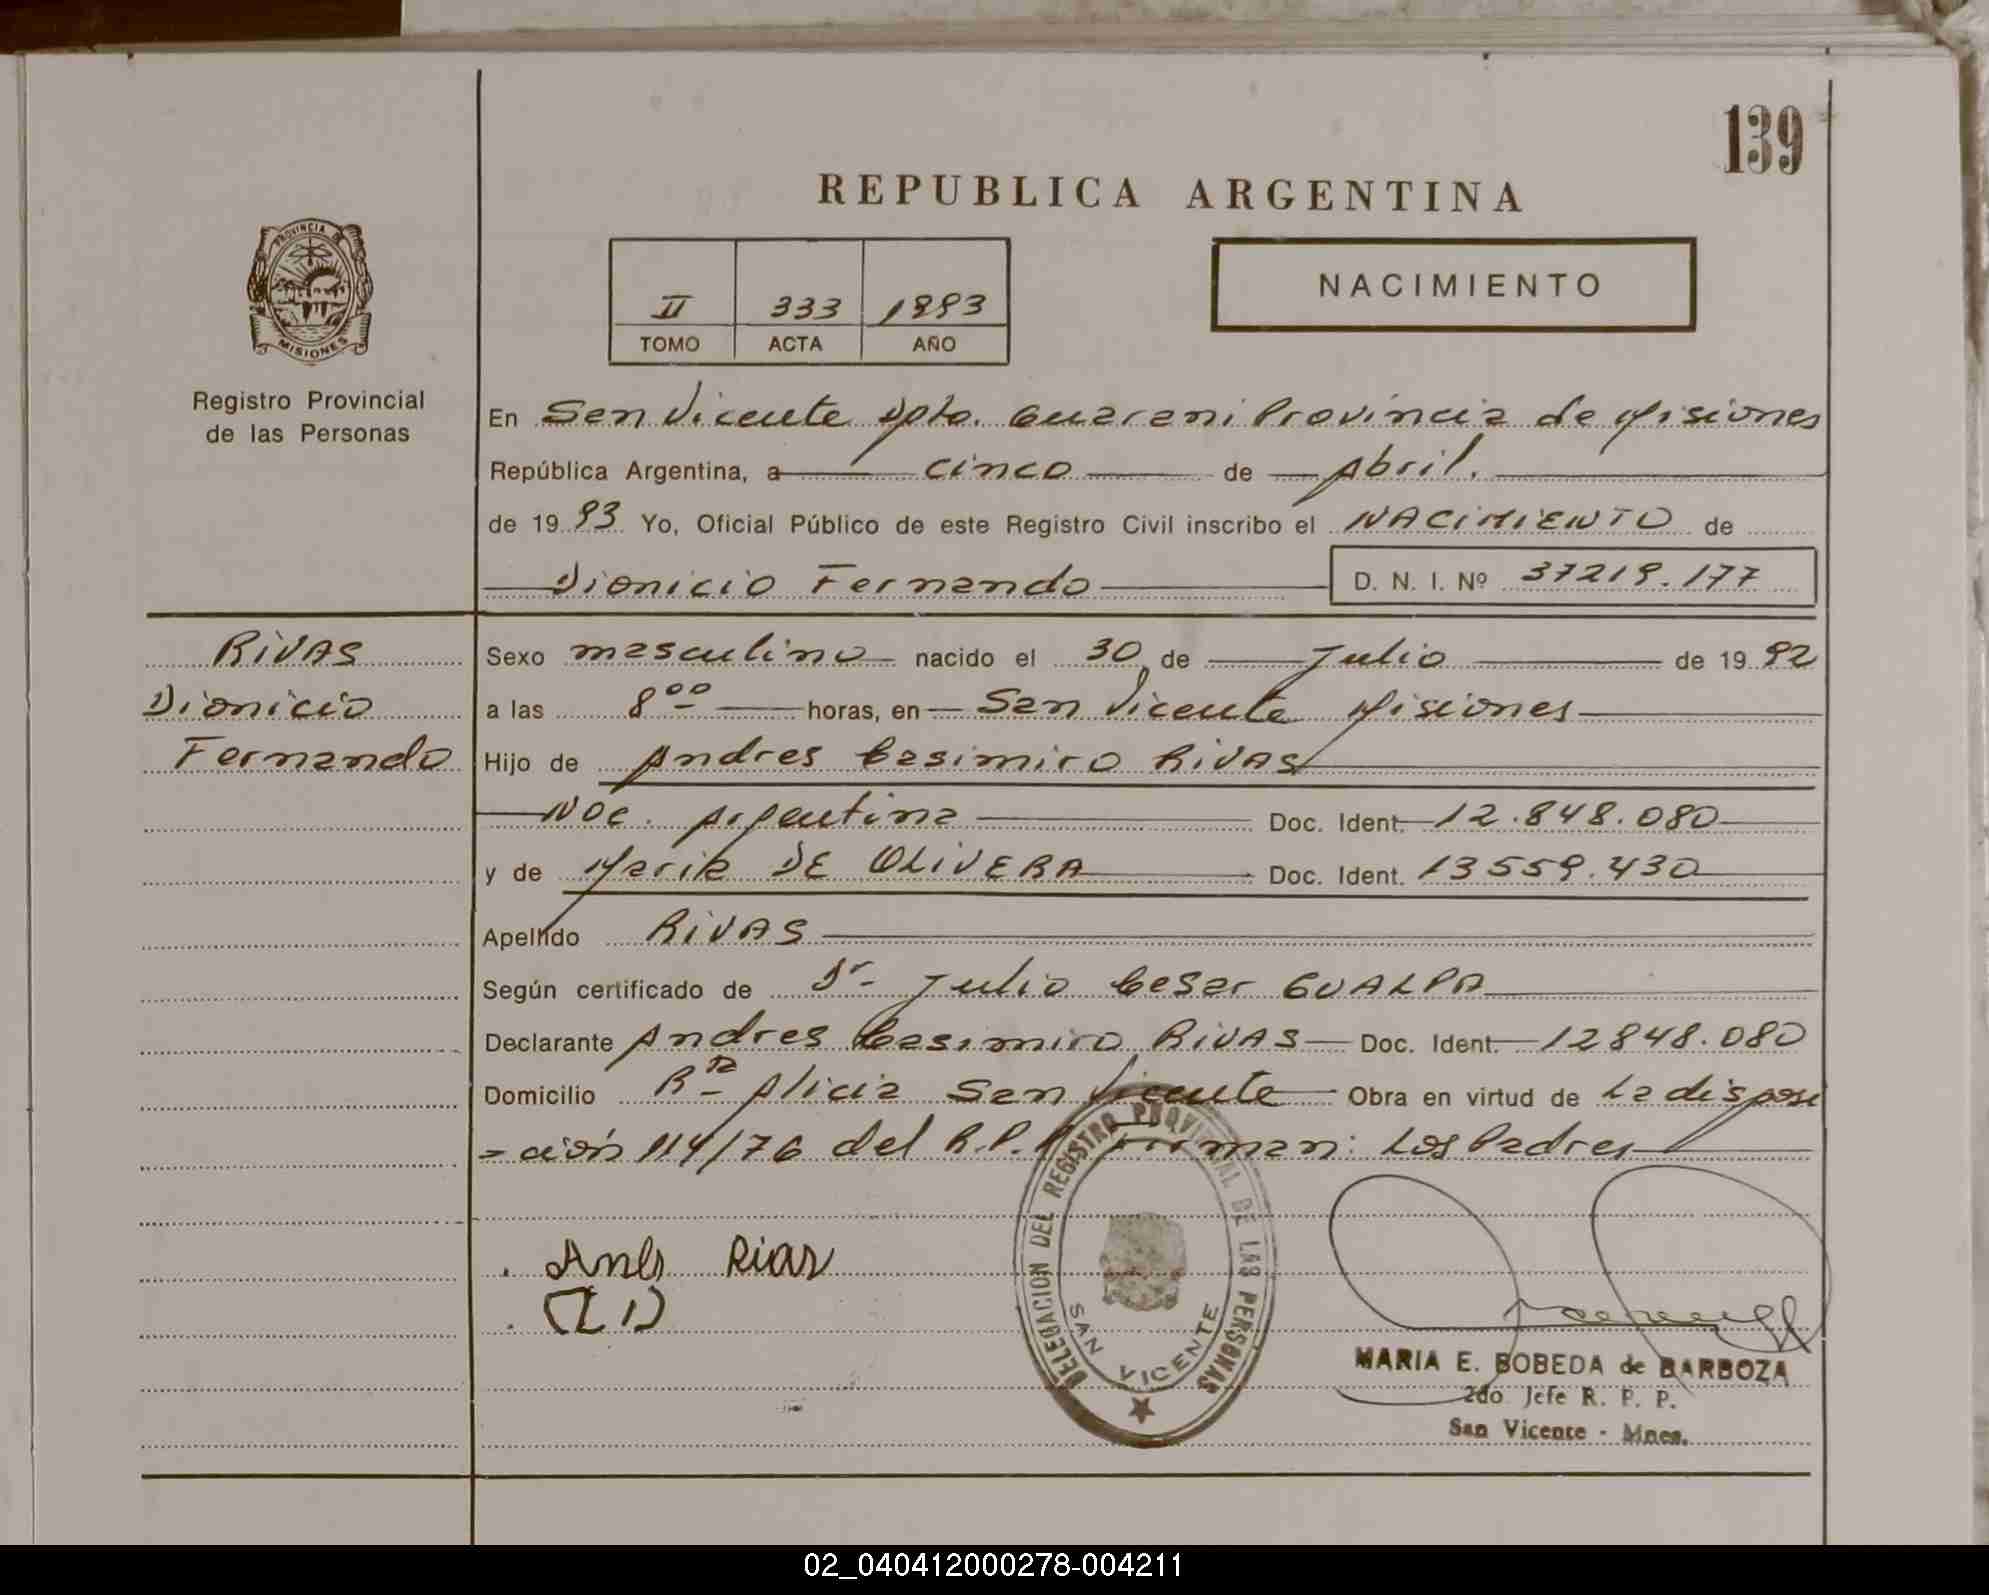 139
REPUBLICA ARGENTINA
PROVINCIA DE
MISIONES
Registro Provincial
de las Personas
II 333 1993
TOMO ACTA AÑO
NACIMIENTO
En San Vicente Dpto. Guarani Provincia de Misiones
República Argentina, a cinco de Abril.
de 19 93 Yo, Oficial Público de este Registro Civil inscribo el NACIMIENTO de
Dionicio Fernando D. N. I. Nº 37219.177
RIVAS
Dionicio
Fernando
Sexo masculino nacido el 30 de Julio de 19 92
a las 8⁰⁰ horas, en San Vicente Misiones
Hijo de Andres Casimiro RIVAS
Nac. Argentina Doc. Ident. 12.848.080
y de Maria DE OLIVERA Doc. Ident. 13559.430
Apellido RIVAS
Según certificado de Dr. Julio Cesar GUALPA
Declarante Andres Casimiro RIVAS Doc. Ident. 12848.080
Domicilio Rta Alicia San Vicente Obra en virtud de La disposi
=ción 114/76 del R.P.P. Firman: Los Padres
DELEGACION DEL REGISTRO PROVINCIAL DE LAS PERSONAS
SAN VICENTE
MARIA E. BOBEDA de BARBOZA
2do Jefe R. P. P.
San Vicente - Mnes.
02_040412000278-004211